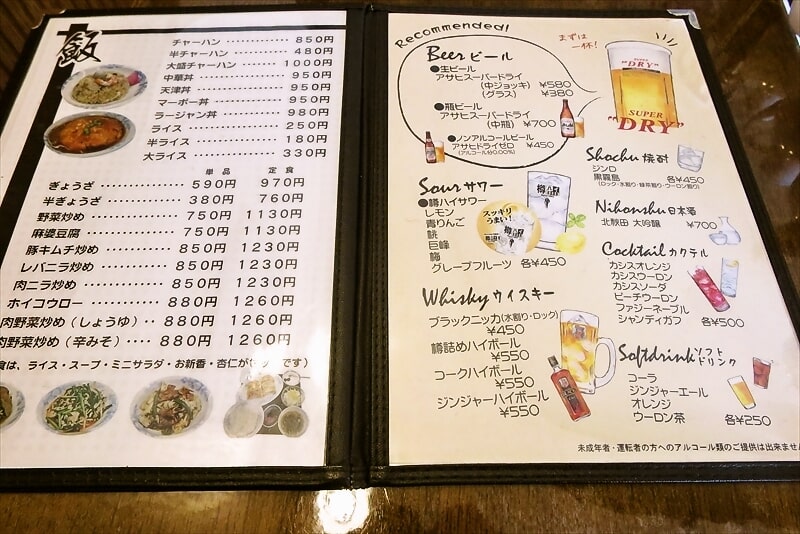 飯
チャーハン ・・・・・・・・・ 850円
半チャーハン ・・・・・・・・ 480円
大盛チャーハン ・・・・・・ 1000円
中華丼 ・・・・・・・・・・・ 950円
天津丼 ・・・・・・・・・・・ 950円
マーボー丼 ・・・・・・・・・ 950円
ラージャン丼 ・・・・・・・・ 980円
ライス ・・・・・・・・・・・ 250円
半ライス ・・・・・・・・・・ 180円
大ライス ・・・・・・・・・・ 330円
単品 定食
ぎょうざ ・・・・・・・・・・ 590円 970円
半ぎょうざ ・・・・・・・・・ 380円 760円
野菜炒め ・・・・・・・・・・ 750円 1130円
麻婆豆腐 ・・・・・・・・・・ 750円 1130円
豚キムチ炒め ・・・・・・・・ 850円 1230円
レバニラ炒め ・・・・・・・・ 850円 1230円
肉ニラ炒め ・・・・・・・・・ 850円 1230円
ホイコウロー ・・・・・・・・ 880円 1260円
肉野菜炒め(しょうゆ)・・・ 880円 1260円
肉野菜炒め(辛みそ)・・・・ 880円 1260円
食は、ライス・スープ・ミニサラダ・お新香・杏仁が
です)
Recommended!
まずは
一杯!
Beer ビール
●生ビール
アサヒスーパードライ
(中ジョッキ) ¥580
(グラス) ¥380
●瓶ビール
アサヒスーパードライ
(中瓶) ¥700
●ノンアルコールビール
アサヒドライゼロ ¥450
(アルコール分0.00%)
SUPER
"DRY"
SUPER
"DRY"
Sour サワー
●樽ハイサワー
レモン
青りんご
桃
巨峰
梅
グレープフルーツ 各¥450
スッキリ
うまい!
樽ハイ
Whisky ウイスキー
ブラックニッカ(水割り・ロック)
¥450
樽詰めハイボール
¥550
コークハイボール
¥550
ジンジャーハイボール
¥550
Shochu 焼酎
ジンロ
黒霧島 各¥450
(ロック・水割り・緑茶割り・ウーロン割り)
Nihonshu 日本酒
北秋田 大吟醸 ¥700
Cocktail カクテル
カシスオレンジ
カシスウーロン
カシスソーダ
ピーチウーロン
ファジーネーブル
シャンディガフ 各¥500
Softdrink ソフトドリンク
コーラ
ジンジャーエール
オレンジ
ウーロン茶 各¥250
未成年者・運転者の方へのアルコール類のご提供は出来ませ